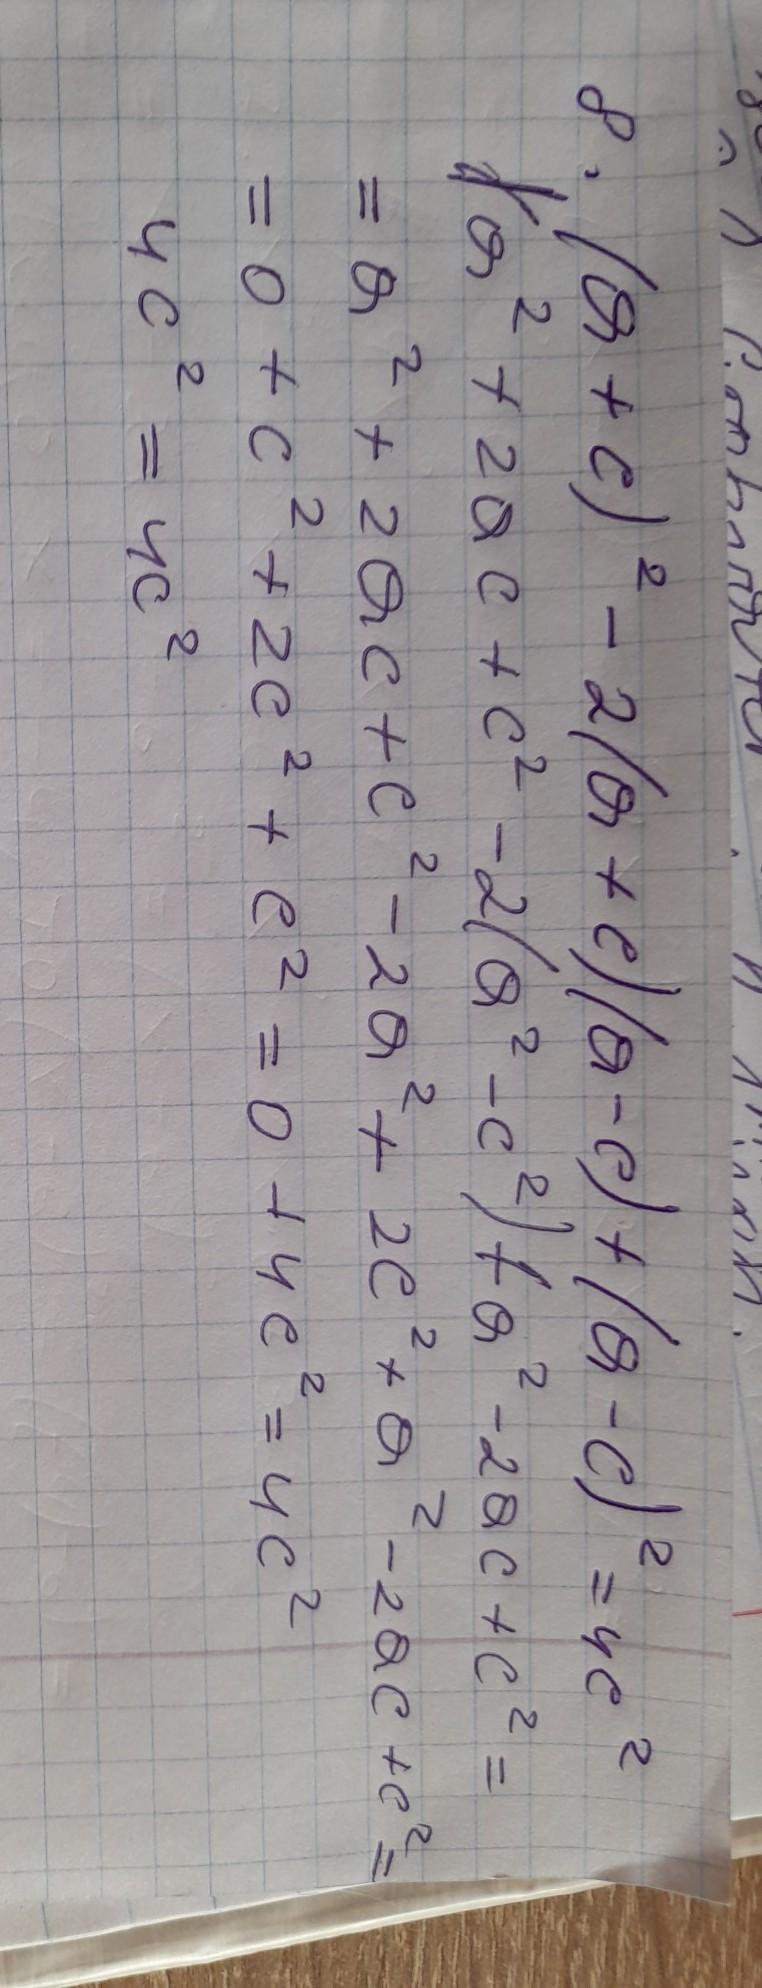 8. (a+c)² - 2(a+c)(a-c) + (a-c)² = 4c²
a² + 2ac + c² - 2(a² - c²) + a² - 2ac + c² =
= a² + 2ac + c² - 2a² + 2c² + a² - 2ac + c² =
= 0 + c² + 2c² + c² = 0 + 4c² = 4c²
4c² = 4c²